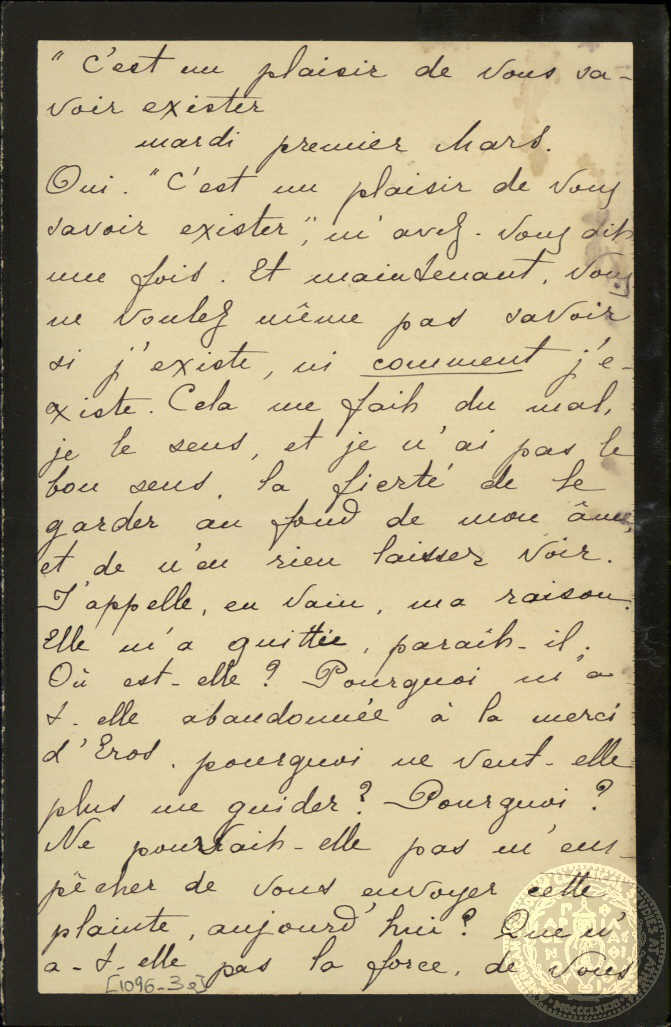 " C'est un plaisir de vous sa-
voir exister
mardi premier Mars.
Oui. "C'est un plaisir de vous
savoir exister", m'avez-vous dit
une fois. Et maintenant, vous
ne voulez même pas savoir
si j'existe, ni comment j'e-
xiste. Cela me fait du mal,
je le sens, et je n'ai pas le
bon sens, la fierté de le
garder au fond de mon âme,
et de n'en rien laisser voir.
J'appelle, en vain, ma raison.
Elle m'a quittée, parait-il.
Où est-elle? Pourquoi m'a
t-elle abandonnée à la merci
d'Eros, pourquoi ne veut-elle
plus me guider? Pourquoi?
Ne pourrait-elle pas m'em-
pêcher de vous envoyer cette
plainte, aujourd'hui? Que n'
a-t-elle pas la force, de vous
[1096-3a]